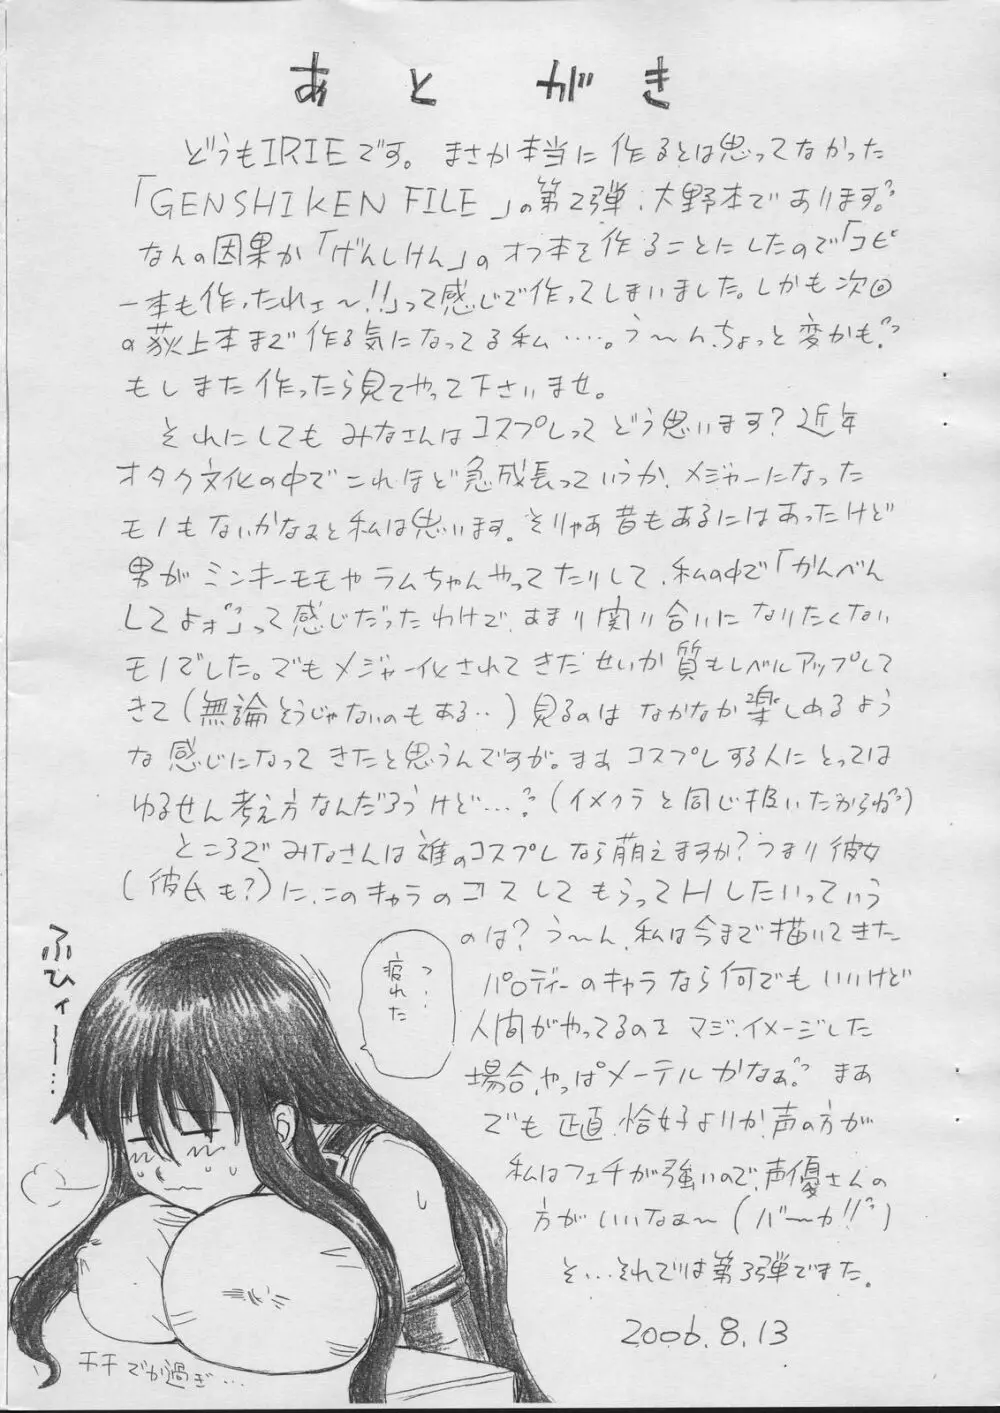 あとがき
どうもIRIEです。まさか本当に作るとは思ってなかった
「GENSHIKEN FILE」の第2弾、大野本であります。
なんの因果か「げんしけん」のオフ本を作ることにしたので「コピ
ー本も作ったれェ〜!!」って感じで作ってしまいました。しかも次回
の荻上本まで作る気になってる私……。う〜ん、ちょっと変かも?
もしまた作ったら見てやって下さいませ。
それにしてもみなさんはコスプレってどう思います?近年
オタク文化の中でこれほど急成長っていうか、メジャーになった
モノもないかなぁと私は思います。そりゃあ昔もあるにはあったけど
男がミンキーモモやラムちゃんやってたりして、私の中で「かんべん
してよォ」って感じだったわけで、あまり関り合いになりたくない
モノでした。でもメジャー化されてきたせいか質もレベルアップして
きて(無論そうじゃないのもある‥)見るのはなかなか楽しめるよう
な感じになってきたと思うんですが。まあコスプレする人にとっては
ゆるせん考え方なんだろうけど…。(イメクラと同じ扱いだからね)
ところでみなさんは誰のコスプレなら萌えますか?つまり彼女
(彼氏も?)に、このキャラのコスしてもらってHしたいっていう
のは?う〜ん、私は今まで描いてきた
パロディーのキャラなら何でもいいけど
人間がやってるのをマジ、イメージした
場合、やっぱメーテルかなぁ。まあ
でも正直、恰好よりか、声の方が
私はフェチが強いので、声優さんの
方がいいなぁ〜(バーカ!!)
そ…それでは第3弾でまた。
2006.8.13
ふひィーー…
つ…
疲れた
チチでか過ぎ…